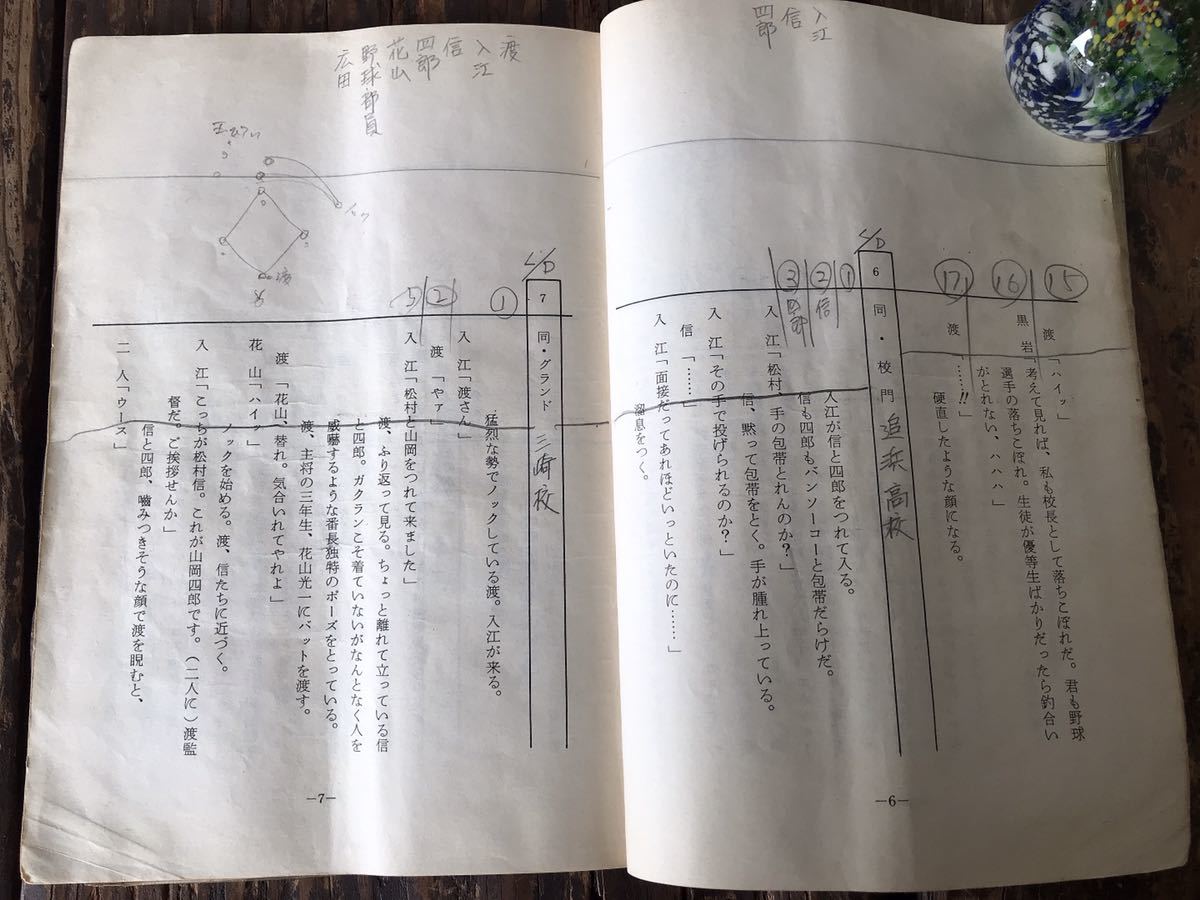 入江
信
四郎
⑮
⑯
⑰
渡「ハイッ」
黒岩「考えて見れば、私も校長として落ちこぼれだ。君も野球
選手の落ちこぼれ。生徒が優等生ばかりだったら釣合い
がとれない、ハハハ」
渡「……!!」
硬直したような顔になる。
L/D
6 同・校門 追浜高校
①
②信
③四郎
入江が信と四郎をつれて入る。
信も四郎もバンソーコーと包帯だらけだ。
入江「松村、手の包帯とれんのか?」
信、黙って包帯をとく。手が腫れ上っている。
入江「その手で投げられるのか?」
信「……」
入江「面接だってあれほどいっといたのに……」
溜息をつく。
—6—
渡
入江
信
四郎
花山
野球部員
広田
渡
L/D
7 同・グランド 三崎校
①
②
③
猛烈な勢でノックしている渡。入江が来る。
入江「渡さん」
渡「やァ」
入江「松村と山岡をつれて来ました」
渡、ふり返って見る。ちょっと離れて立っている信
と四郎。ガクランこそ着ていないがなんとなく人を
威嚇するような番長独特のポーズをとっている。
渡、主将の三年生、花山光一にバットを渡す。
渡「花山、替れ。気合いれてやれよ」
花山「ハイッ」
ノックを始める。渡、信たちに近づく。
入江「こっちが松村信。これが山岡四郎です。(二人に)渡監
督だ。ご挨拶せんか」
信と四郎、嚙みつきそうな顔で渡を睨むと、
二人「ウース」
—7—